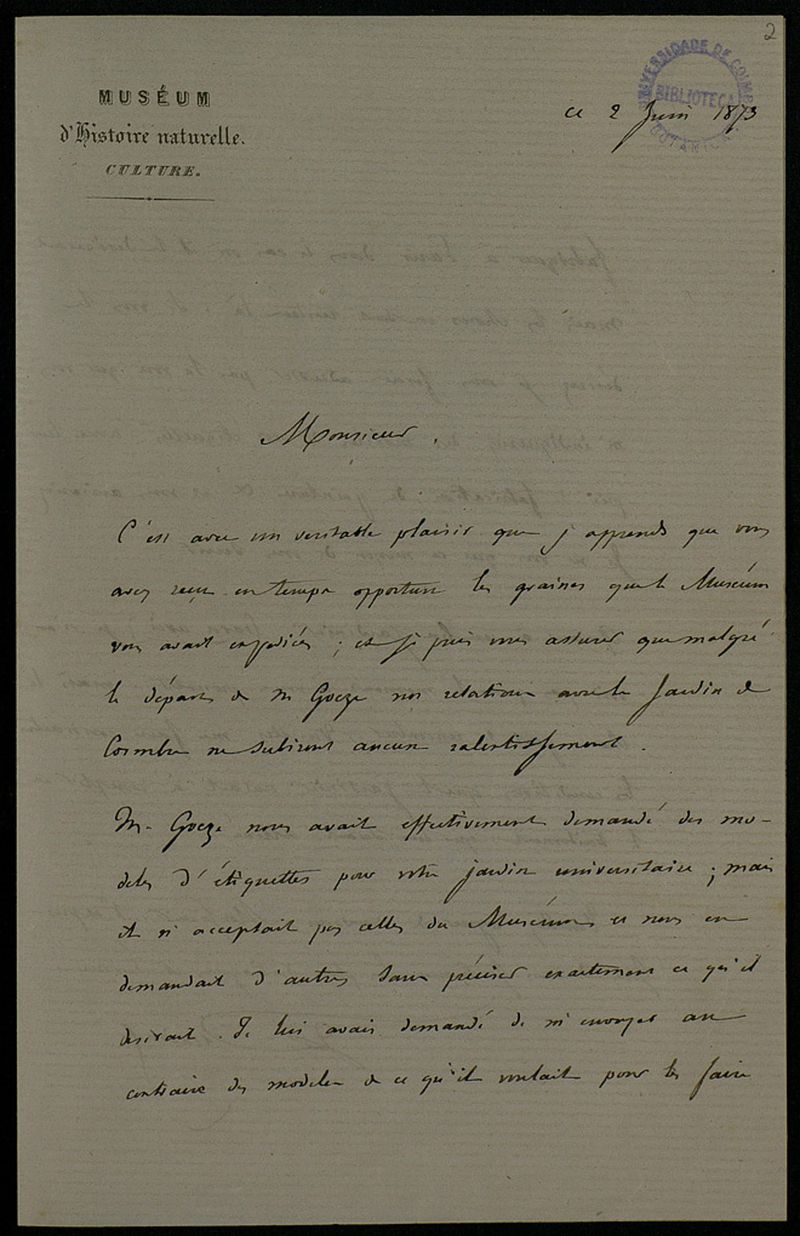 2
MUSÉUM
d'Histoire naturelle.
CULTURE.
UNIVERSIDADE DE COIMBRA
BIBLIOTECA
BOTANICA
ce 2 Juin 1873
Monsieur,
C'est avec un veritable plaisir que j'apprends que vous
avez reçu en temps opportun les graines que le Muséum
vous avait expediées ; et je puis vous assurer que malgré
le départ de M Goeze nos relations avec le Jardin de
Coimbre ne subiront aucun ralentissement.
Mr Goeze nous avait effectivement demandé des mo-
deles d'étiquettes pour votre jardin universitaire ; mais
il n'acceptait pas celles du Muséum et nous en
demandait d'autres sans préciser exactement ce qu'il
desirait. Je lui avais demandé de m'envoyer au
contraire des modeles de ce qu'il voulait pour les faire